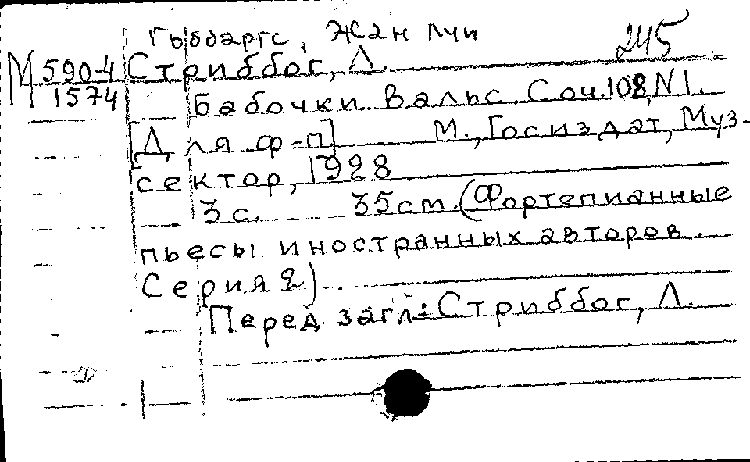 Гоббаргс, Жан Луи
245
М 590-4 Стриббог, Л.
1574
Бабочки Вальс Соч.108, N1.
[Для ф-п] М., Госиздат, Муз-
сектор, 1928
3 с. 35 см. (Фортепианные
пьесы иностранных авторов.
Серия 2)
Перед загл: Стриббог, Л.